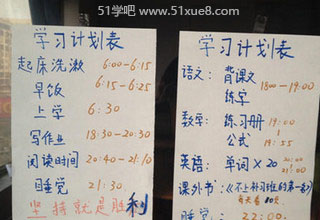 51学吧 www.51xue8.com
学习计划表
起床洗漱 6:00-6:15
早饭 6:15-6:25
上学 6:30
写作业 18:30-20:30
阅读时间 20:40-21:10
睡觉 21:30
坚持就是胜利
学习计划表
语文: 背课文
练字 18:00-19:00
数学: 练习册 19:00
公式 19:55
英语: 单词×20 20:00
21:00
课外书:《不上补习班的第一名》
每天看 80页
睡觉: 22:00.